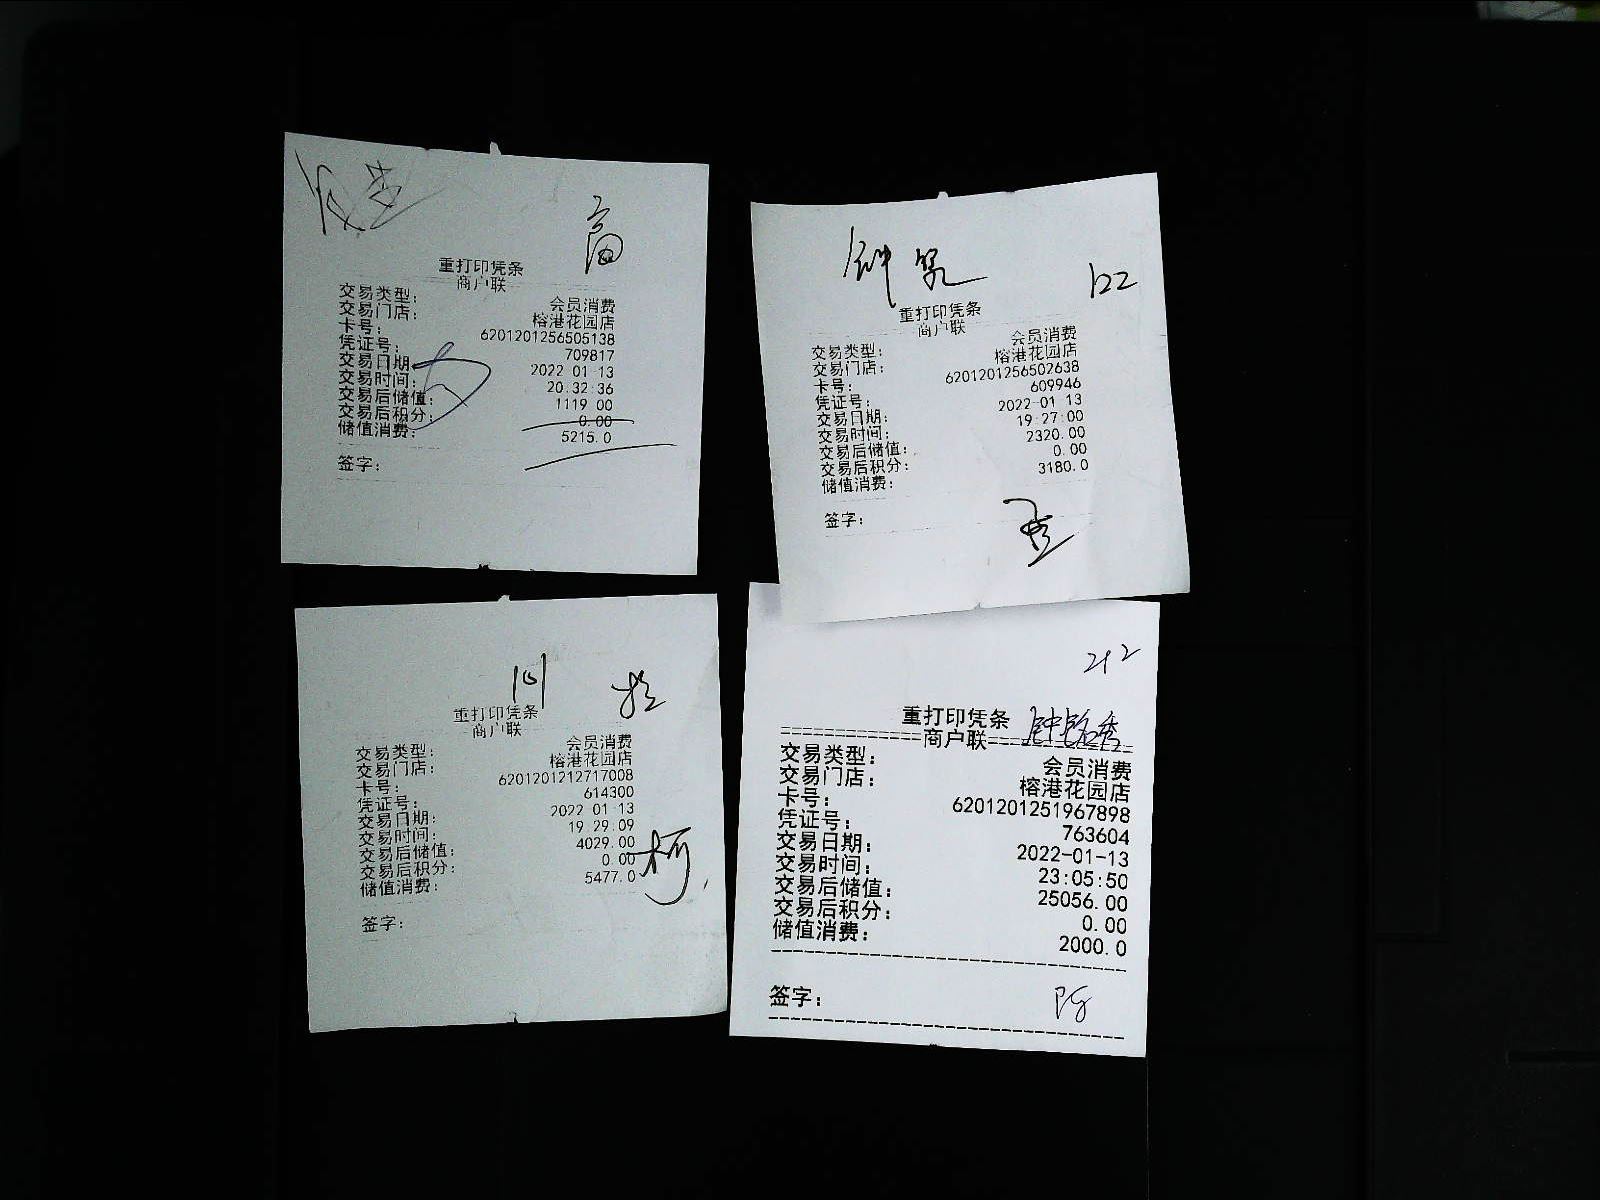 重打印凭条
商户联
交易类型: 会员消费
交易门店: 榕港花园店
卡号: 6201201256505138
凭证号: 709817
交易日期: 2022-01-13
交易时间: 20:32:36
交易后储值: 1119.00
交易后积分: 0.00
储值消费: 5215.0
签字:
122
重打印凭条
商户联
交易类型: 会员消费
交易门店: 榕港花园店
卡号: 6201201256502638
凭证号: 609946
交易日期: 2022-01-13
交易时间: 19:27:00
交易后储值: 2320.00
交易后积分: 0.00
储值消费: 3180.0
签字:
重打印凭条
商户联
交易类型: 会员消费
交易门店: 榕港花园店
卡号: 6201201212717008
凭证号: 614300
交易日期: 2022-01-13
交易时间: 19:29:09
交易后储值: 4029.00
交易后积分: 0.00
储值消费: 5477.0
柯
签字:
212
重打印凭条
商户联
交易类型: 会员消费
交易门店: 榕港花园店
卡号: 6201201251967898
凭证号: 763604
交易日期: 2022-01-13
交易时间: 23:05:50
交易后储值: 25056.00
交易后积分: 0.00
储值消费: 2000.0
签字: